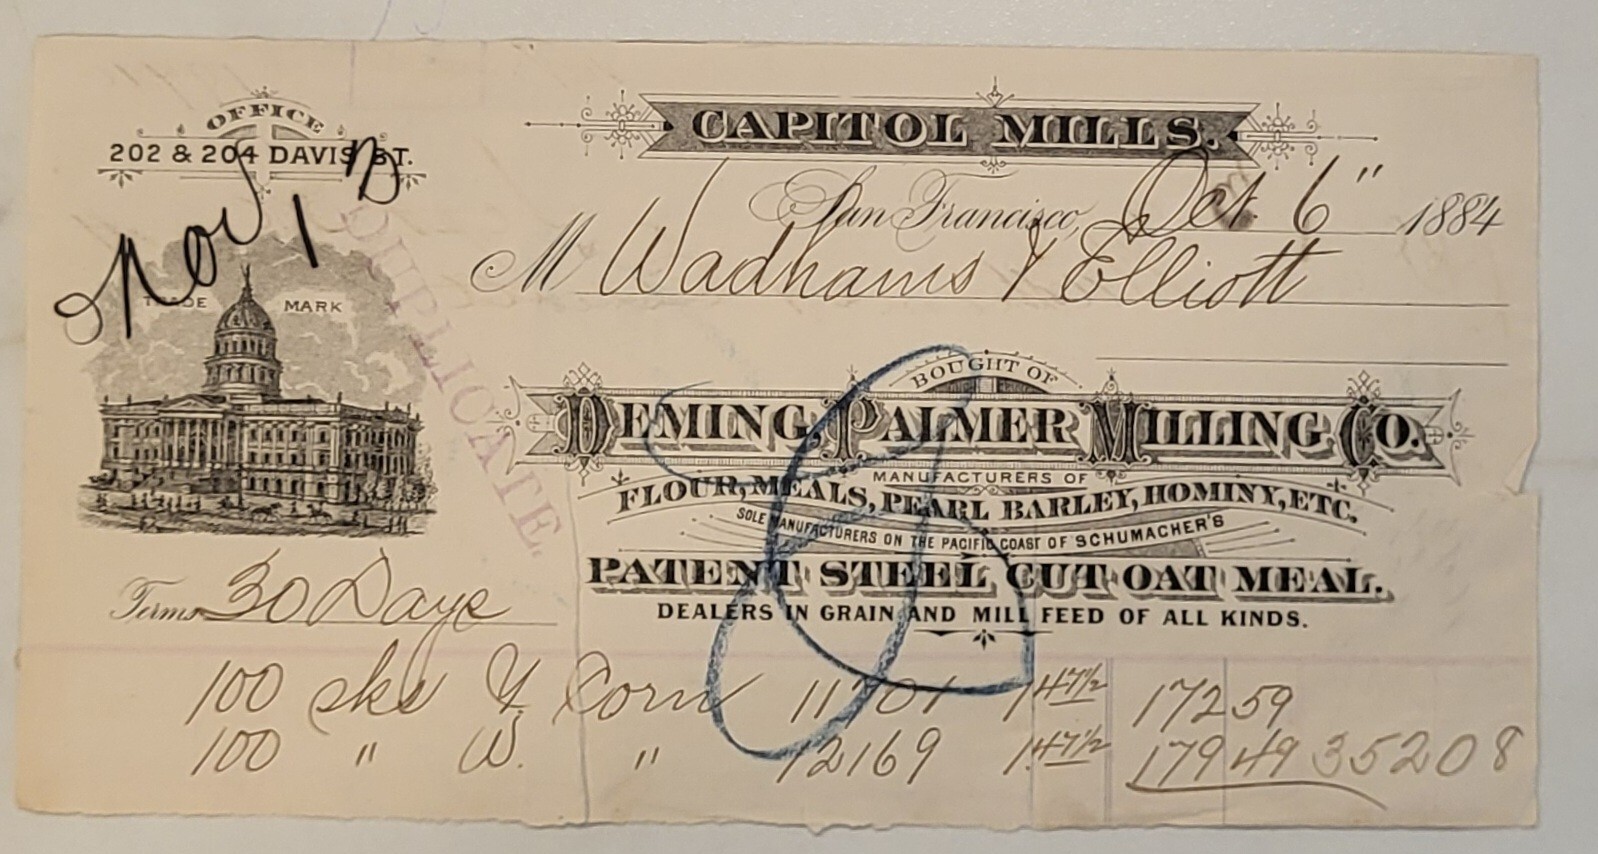 OFFICE
202 & 204 DAVIS ST.
Nov 12
TRADE MARK
DUPLICATE.
CAPITOL MILLS.
San Francisco, Oct. 6" 1884
M Wadhams & Elliott
BOUGHT OF
DEMING, PALMER MILLING CO.
MANUFACTURERS OF
FLOUR, MEALS, PEARL BARLEY, HOMINY, ETC.
SOLE MANUFACTURERS ON THE PACIFIC COAST OF SCHUMACHER'S
PATENT STEEL CUT OAT MEAL.
DEALERS IN GRAIN AND MILL FEED OF ALL KINDS.
Terms 30 Days
100 sks Y. Corn 11701 1.47 1/2 172 59
100 " W. " 12169 1.47 1/2 179 49 352 08